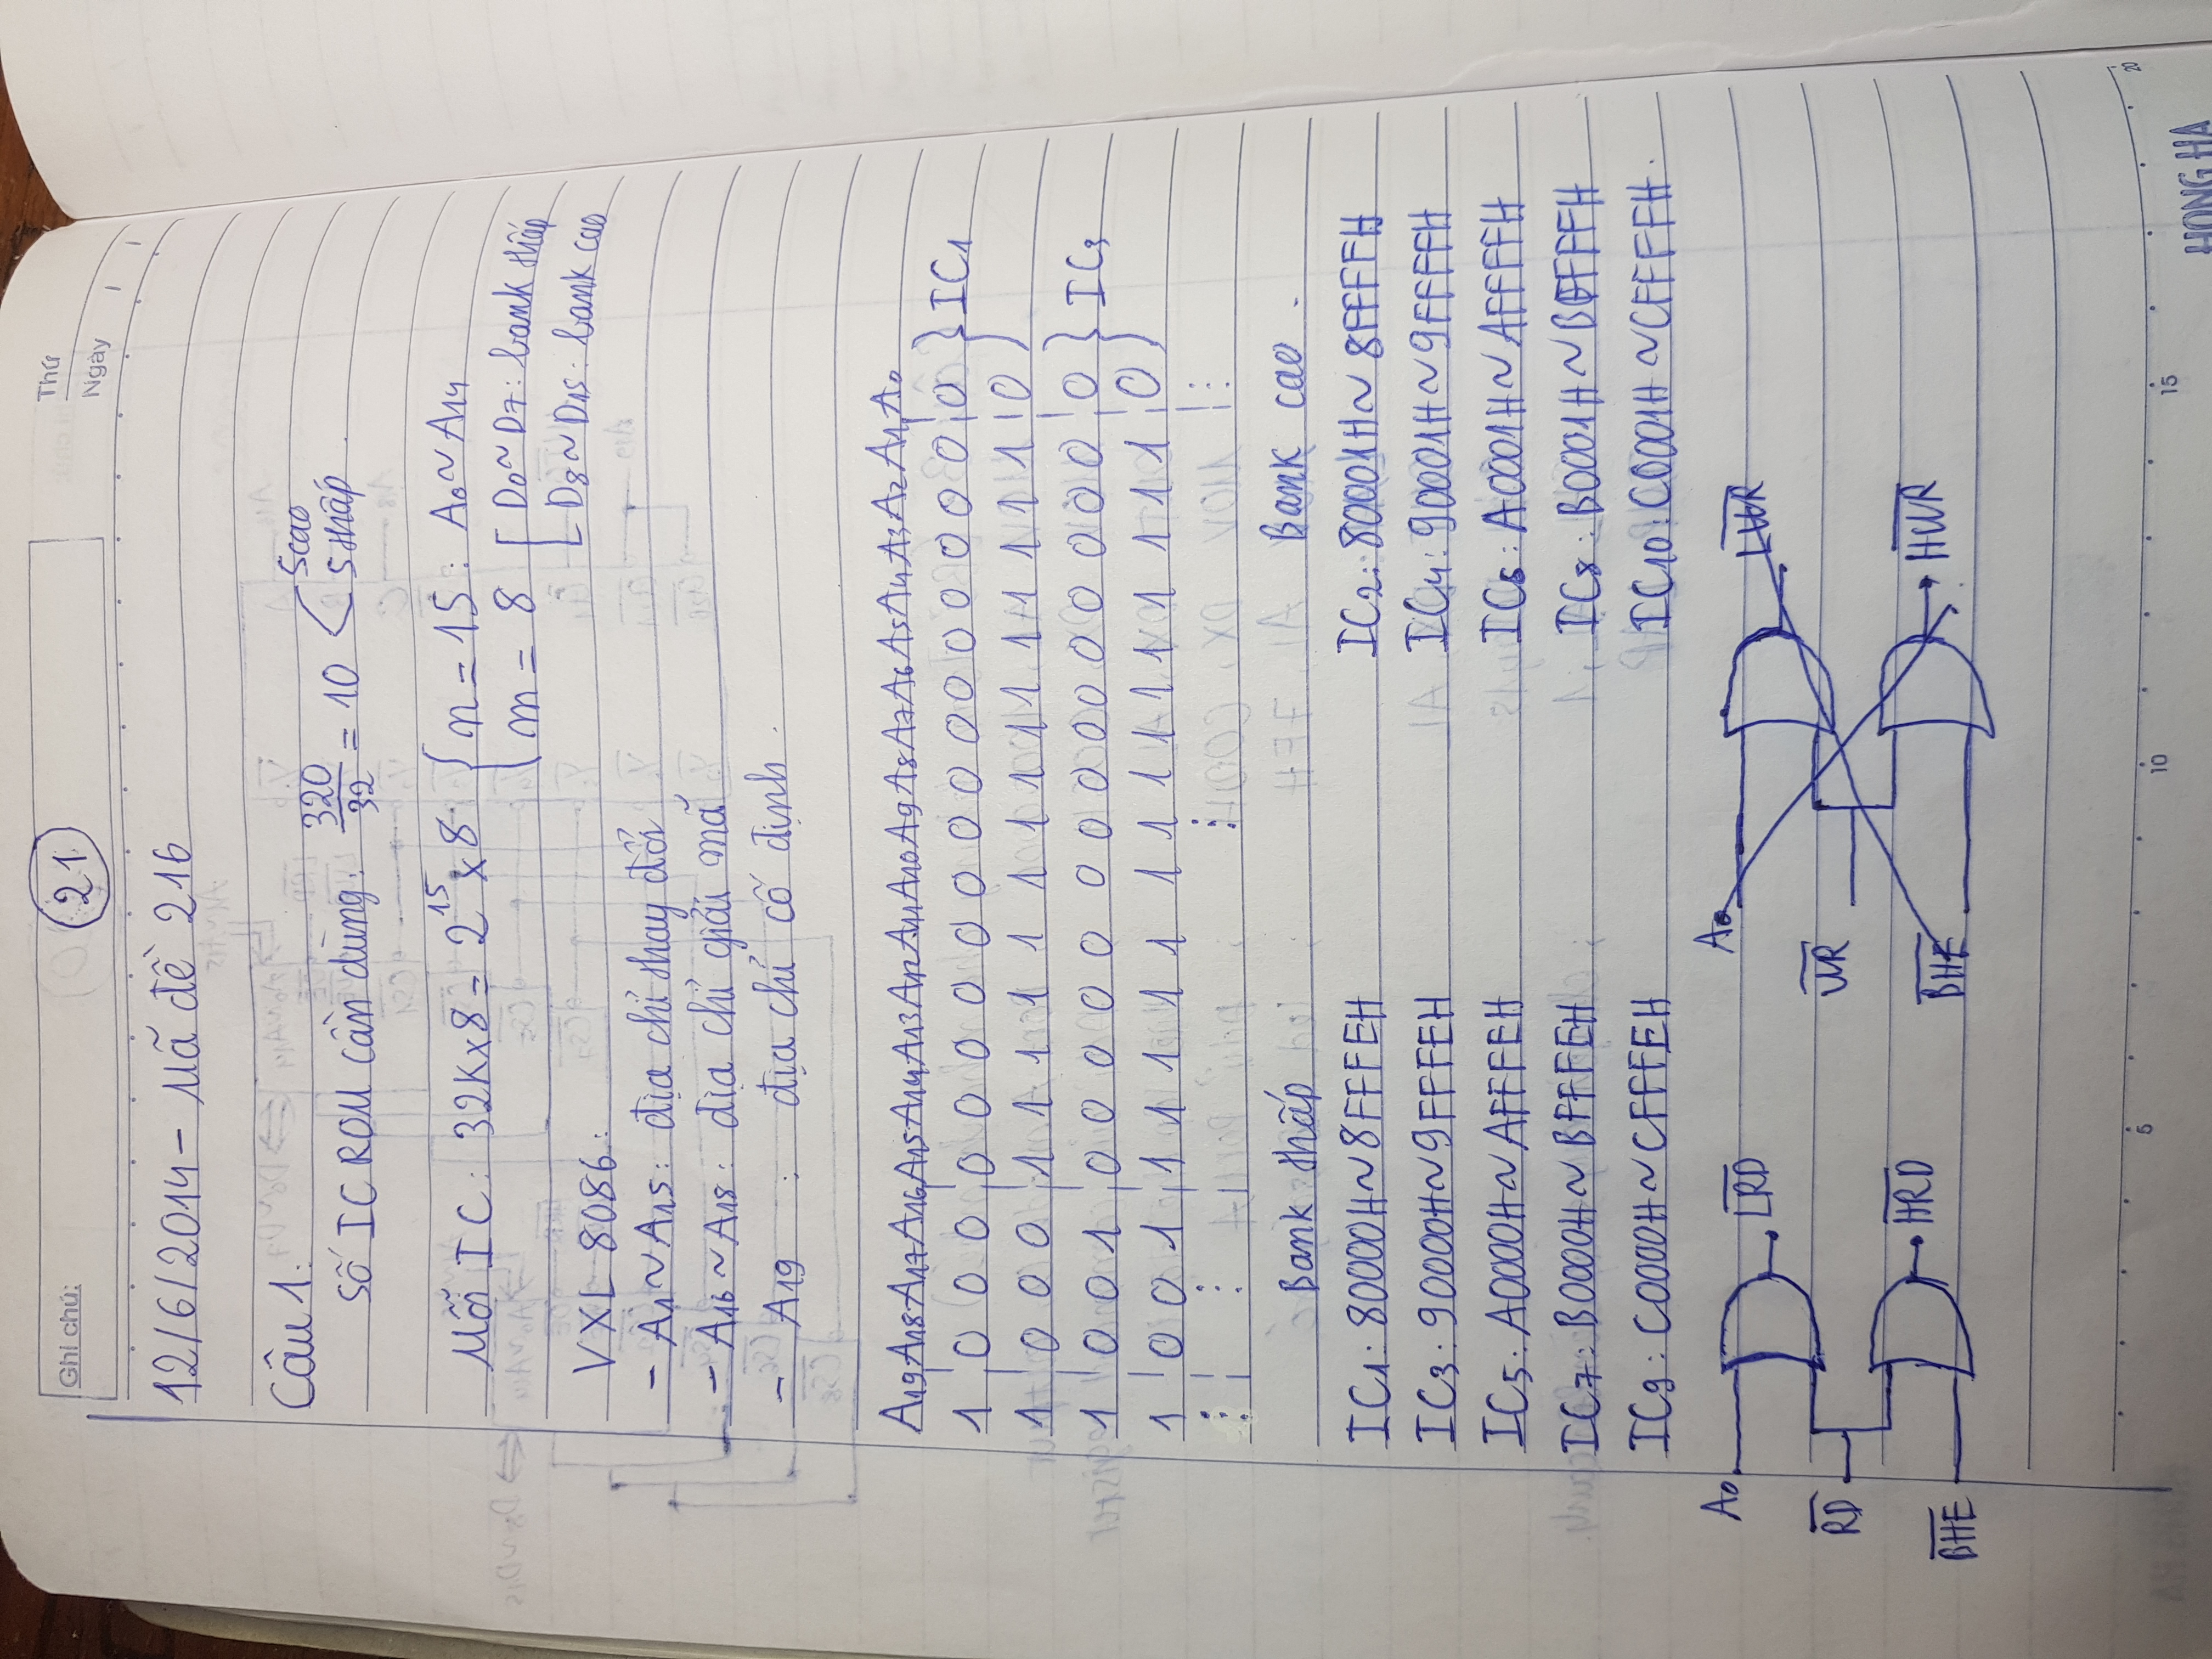 Ghi chú:
21
Thứ
Ngày
12/6/2014 - Mã đề 216
Câu 1:
Số IC ROM cần dùng: 320/32 = 10 < 5 cao
5 thấp
Mỗi IC: 32K x 8 = 2^15 x 8 { n = 15: A0 ~ A14
m = 8 [ D0 ~ D7: bank thấp
D8 ~ D15: bank cao
VXL 8086:
- A1 ~ A15: địa chỉ thay đổi
- A16 ~ A18: địa chỉ giải mã
- A19 : địa chỉ cố định.
A19 A18 A17 A16 A15 A14 A13 A12 A11 A10 A9 A8 A7 A6 A5 A4 A3 A2 A1 A0
1 0 0 0 0 0 0 0 0 0 0 0 0 0 0 0 0 0 0 0 } IC1
1 0 0 0 1 1 1 1 1 1 1 1 1 1 1 1 1 1 1 0
1 0 0 1 0 0 0 0 0 0 0 0 0 0 0 0 0 0 0 0 } IC3
1 0 0 1 1 1 1 1 1 1 1 1 1 1 1 1 1 1 1 0
Bank thấp Bank cao.
IC1: 80000H ~ 8FFFEH IC2: 80001H ~ 8FFFFH
IC3: 90000H ~ 9FFFEH IC4: 90001H ~ 9FFFFH
IC5: A0000H ~ AFFFEH IC6: A0001H ~ AFFFFH
IC7: B0000H ~ BFFFEH IC8: B0001H ~ BFFFFH
IC9: C0000H ~ CFFFEH IC10: C0001H ~ CFFFFH.
A0 L̅R̅D̅ A0 L̅W̅R̅
R̅D̅ W̅R̅
H̅R̅D̅ H̅W̅R̅
B̅H̅E̅ B̅H̅E̅
5 10 15 20
HONG HA